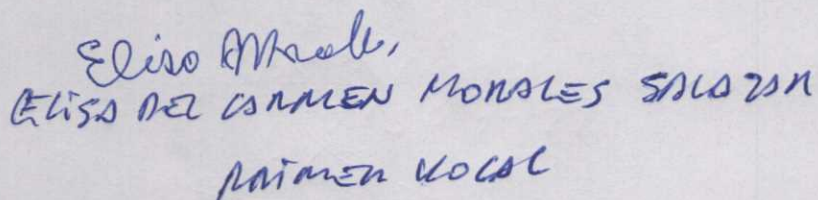 Elisa Morales
ELISA DEL CARMEN MORALES SALAZAR
PRIMER VOCAL